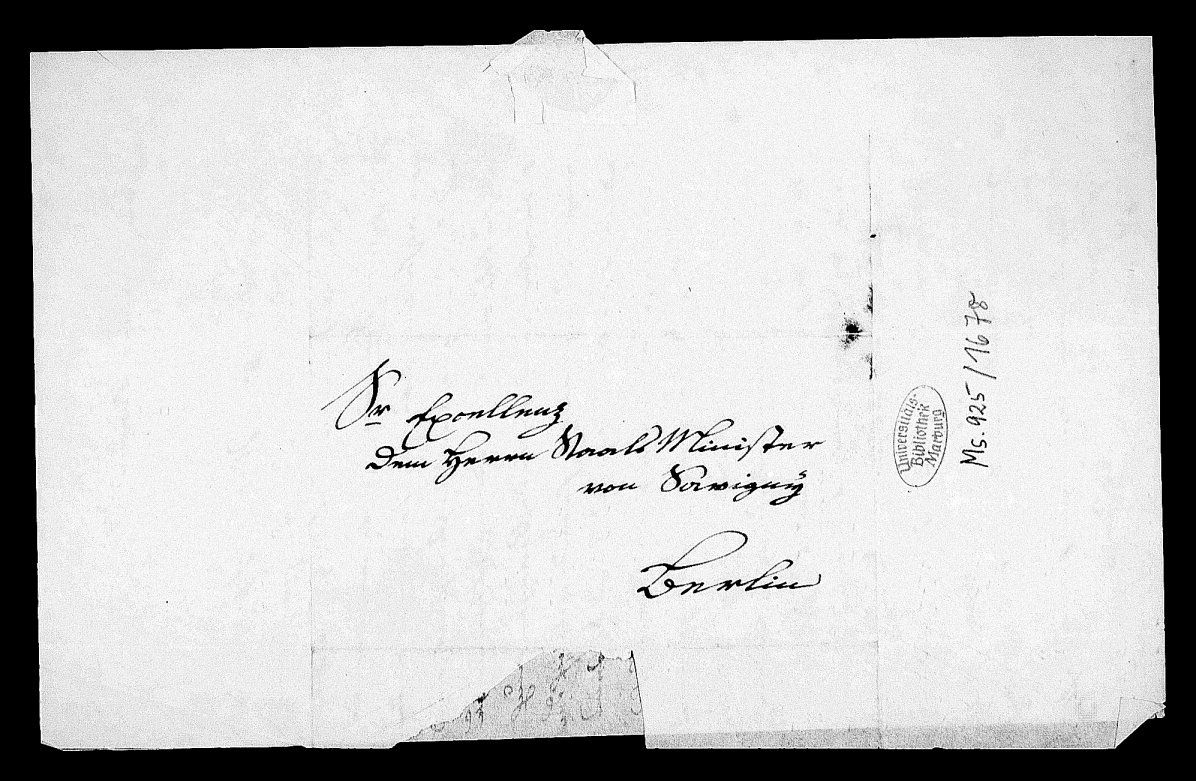 Sr Excellenz
dem Herrn Staats Minister
von Savigny
Berlin
Universitäts-
Bibliothek
Marburg
Ms. 925/1678